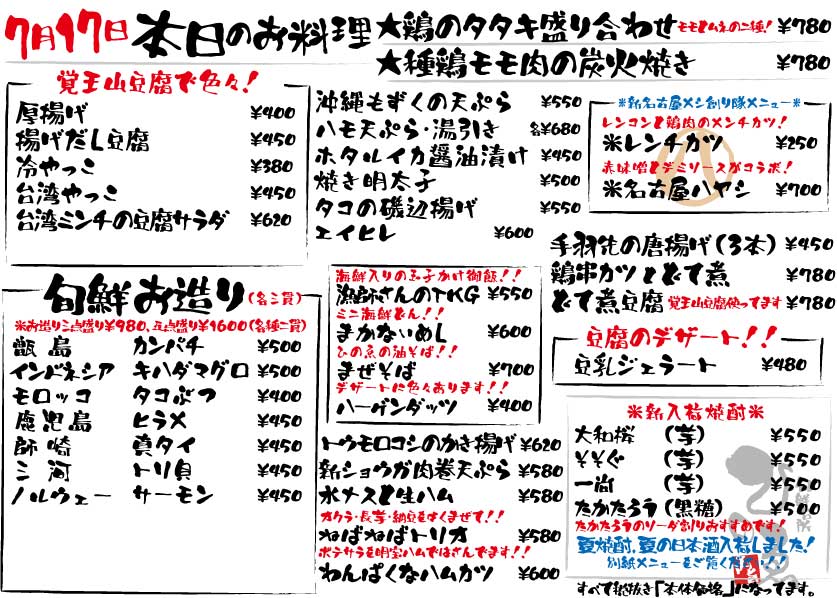 7月17日 本日のお料理
★鶏のタタキ盛り合わせ モモとムネの二種! ¥780
★種鶏モモ肉の炭火焼き ¥780
覚王山豆腐で色々!
厚揚げ ¥400
揚げだし豆腐 ¥450
冷やっこ ¥380
台湾やっこ ¥450
台湾ミンチの豆腐サラダ ¥620
旬鮮お造り(各三貫)
※お造り三点盛り¥980、五点盛り¥1600(各種二貫)
甑島 カンパチ ¥500
インドネシア キハダマグロ ¥500
モロッコ タコぶつ ¥400
鹿児島 ヒラメ ¥450
師崎 真タイ ¥450
三河 トリ貝 ¥450
ノルウェー サーモン ¥450
沖縄もずくの天ぷら ¥550
ハモ天ぷら・湯引き 各¥680
ホタルイカ醤油漬け ¥450
焼き明太子 ¥500
タコの磯辺揚げ ¥550
エイヒレ ¥600
海鮮入りの玉子かけ御飯!!
漁師さんのTKG ¥550
ミニ海鮮どん!!
まかないめし ¥600
ひの衣の油そば!!
まぜそば ¥700
デザートに色々あります!!
ハーゲンダッツ ¥400
トウモロコシのかき揚げ ¥620
新ショウガ肉巻天ぷら ¥580
水ナスと生ハム ¥580
オクラ・長芋・納豆をよくまぜて!!
ねばねばトリオ ¥580
ポテサラを明宝ハムではさんでます!!
わんぱくなハムカツ ¥600
※新名古屋メシ創り隊メニュー※
レンコンと鶏肉のメンチカツ!
※レンチカツ ¥250
赤味噌とデミソースがコラボ!
※名古屋ハヤシ ¥700
手羽先の唐揚げ(3本) ¥450
鶏串カツとどて煮 ¥780
どて煮豆腐 覚王山豆腐使ってます ¥780
豆腐のデザート!!
豆乳ジェラート ¥480
※新入荷焼酎※
大和桜 (芋) ¥550
そそぐ (芋) ¥550
一尚 (芋) ¥550
たかたろう(黒糖) ¥550
たかたろうのソーダ割りおすすめです!
夏焼酎、夏の日本酒入荷しました!
別紙メニューをご覧ください!!
すべて税抜き「本体価格」になってます。